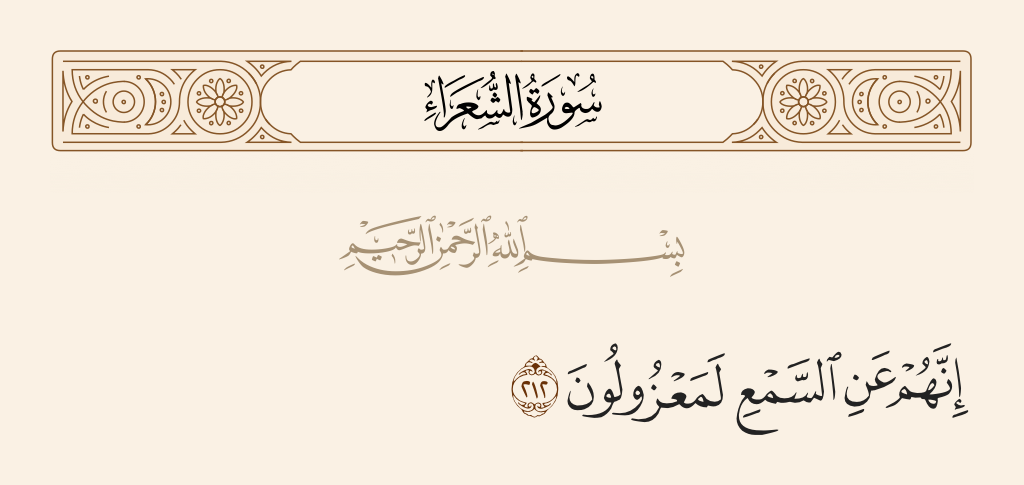 سُورَةُ الشُّعَرَاءِ
بِسْمِ ٱللَّهِ ٱلرَّحْمَٰنِ ٱلرَّحِيمِ
إِنَّهُمْ عَنِ ٱلسَّمْعِ لَمَعْزُولُونَ ٢١٢